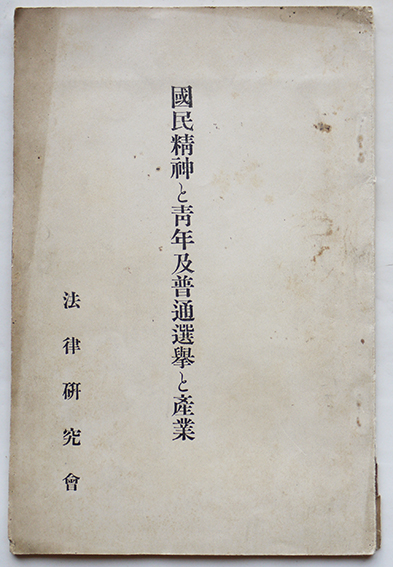 國民精神と靑年及普通選擧と產業
法律硏究會